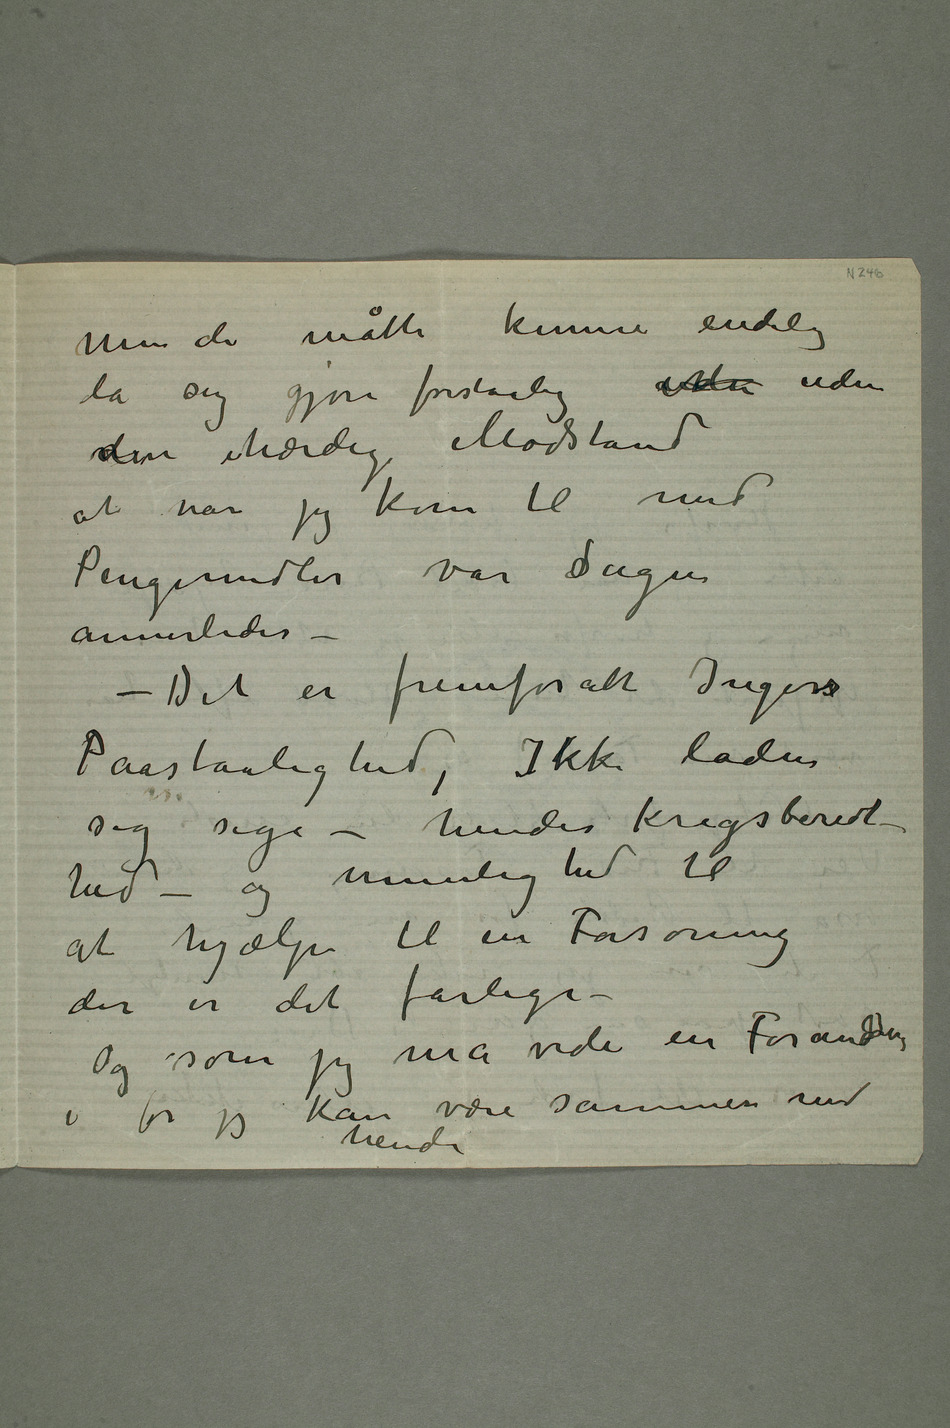 N 246
Men de måtte kunne endelig
la sig gjøre forstaalig uden uden
den ihærdig Modstand
at når jeg kom til med
Pengemidler var Sagen
annerledes –
– Det er fremforalt Ingers
Paastaalighed, Ikke laden
sig sige – hendes Krigsberedt–
hed – og umulighed til
at hjælpe til en Forsoning
der er det farlige –
Og som jeg må vide en Forandring
i før jeg kan være sammen med
hende